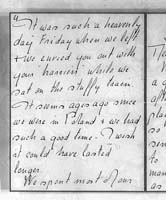 "It was such a heavenly
day Friday when we left
& we envied you out with
your harriers while we
sat on the stuffy train.
It seems ages ago since
we were in Poland & we had
such a good time - I wish
it could have lasted
longer.
We spent most of our